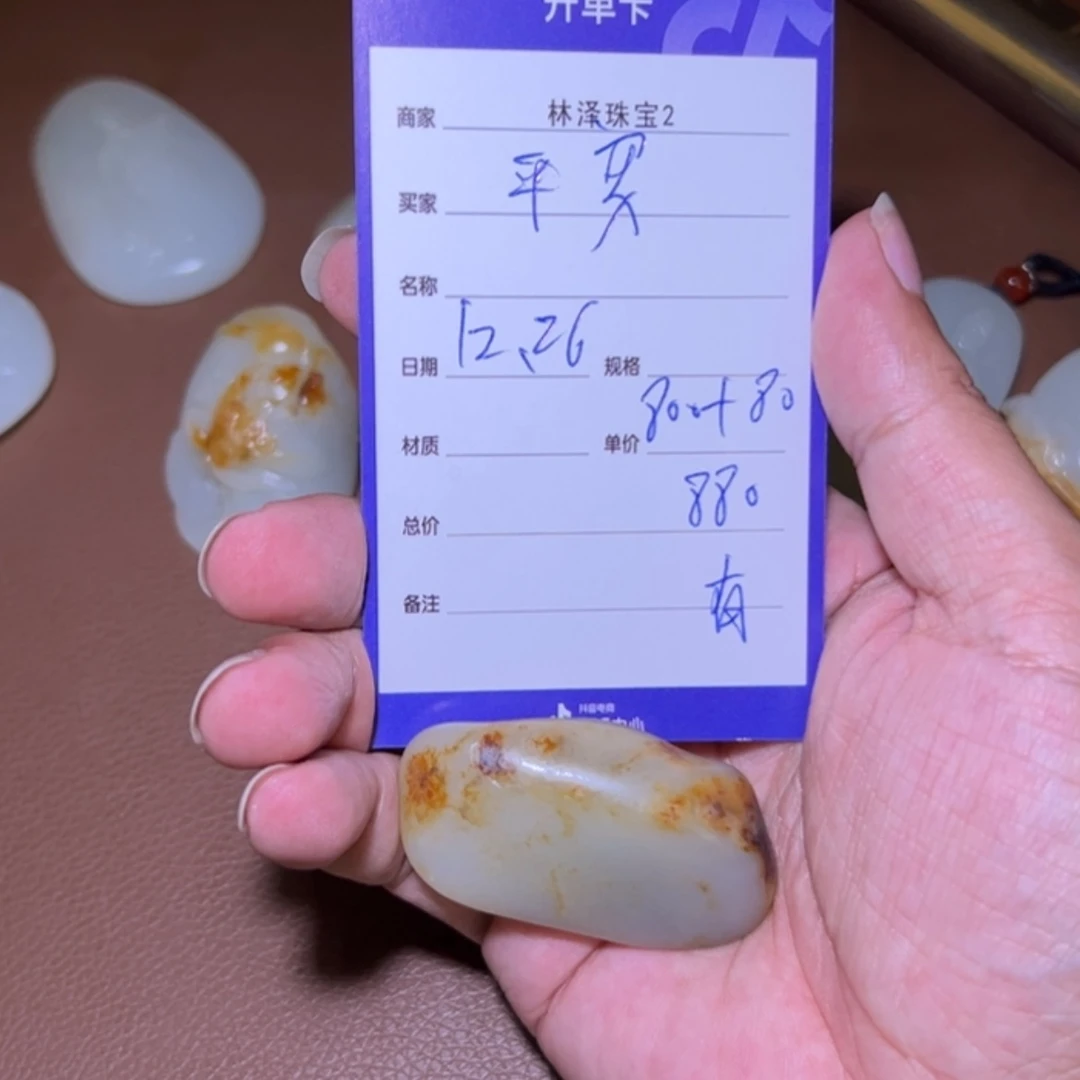 开单卡
商家 林泽珠宝2
买家 平 买
名称
日期 12、26 规格
材质 单价 800+80
总价 880
备注 有
抖音电商